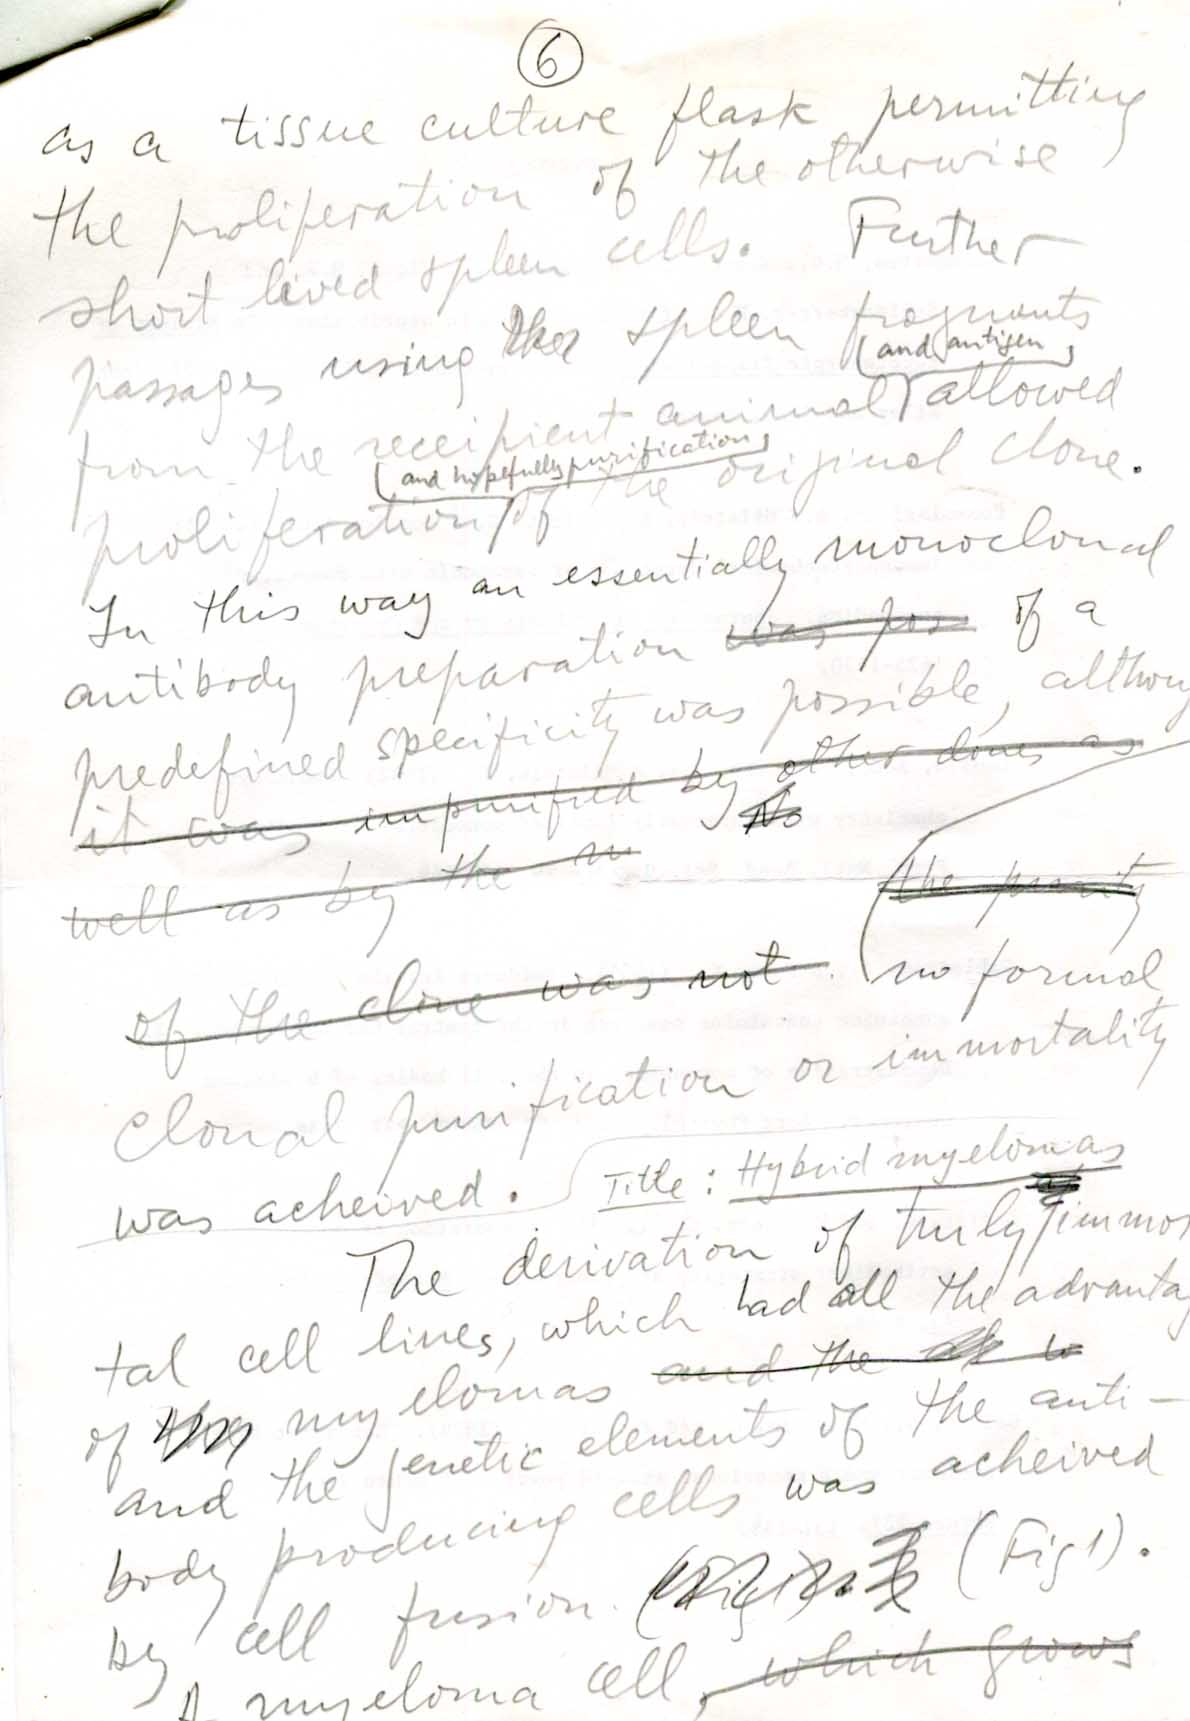 6
as a tissue culture flask permitting
the proliferation of the otherwise
short lived spleen cells. Further
passages using spleen fragments
(and antigen)
from the receipient animal allowed
(and hopefully purification)
proliferation of the original clone.
In this way an essentially monoclonal
antibody preparation was pos of a
predefined specificity was possible, althoug
it was impurified by other clones as
well as by the m No
the purity
of the clone was not. no formal
clonal purification or immortality
was acheived. Title: Hybrid myelomas
The derivation of truly immor
tal cell lines, which had all the advanta
of myelomas and the
and the genetic elements of the anti-
body producing cells was acheived
by cell fusion. (Fig 1).
A myeloma cell, which grows